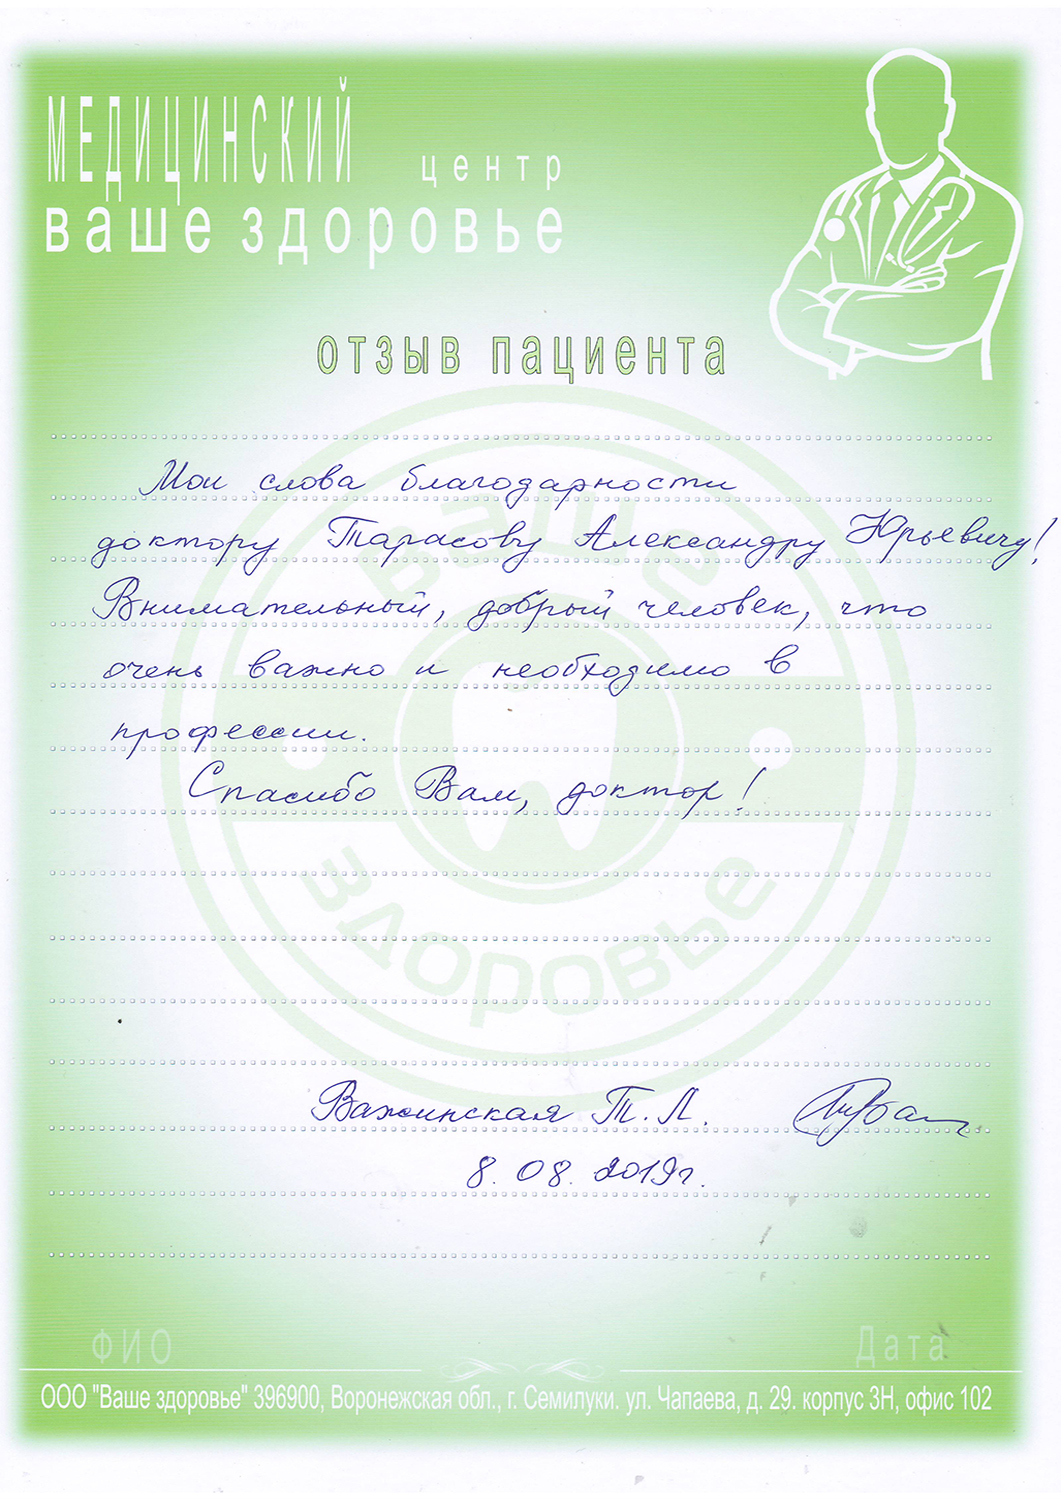 МЕДИЦИНСКИЙ центр
ваше здоровье
отзыв пациента
Мои слова благодарности
доктору Тарасову Александру Юрьевичу!
Внимательный, добрый человек, что
очень важно и необходимо в
профессии.
Спасибо Вам, доктор!
ВАШЕ
ЗДОРОВЬЕ
Важинская Т. Л.
8. 08. 2019г.
ФИО Дата
ООО "Ваше здоровье" 396900, Воронежская обл., г. Семилуки. ул. Чапаева, д. 29. корпус 3Н, офис 102